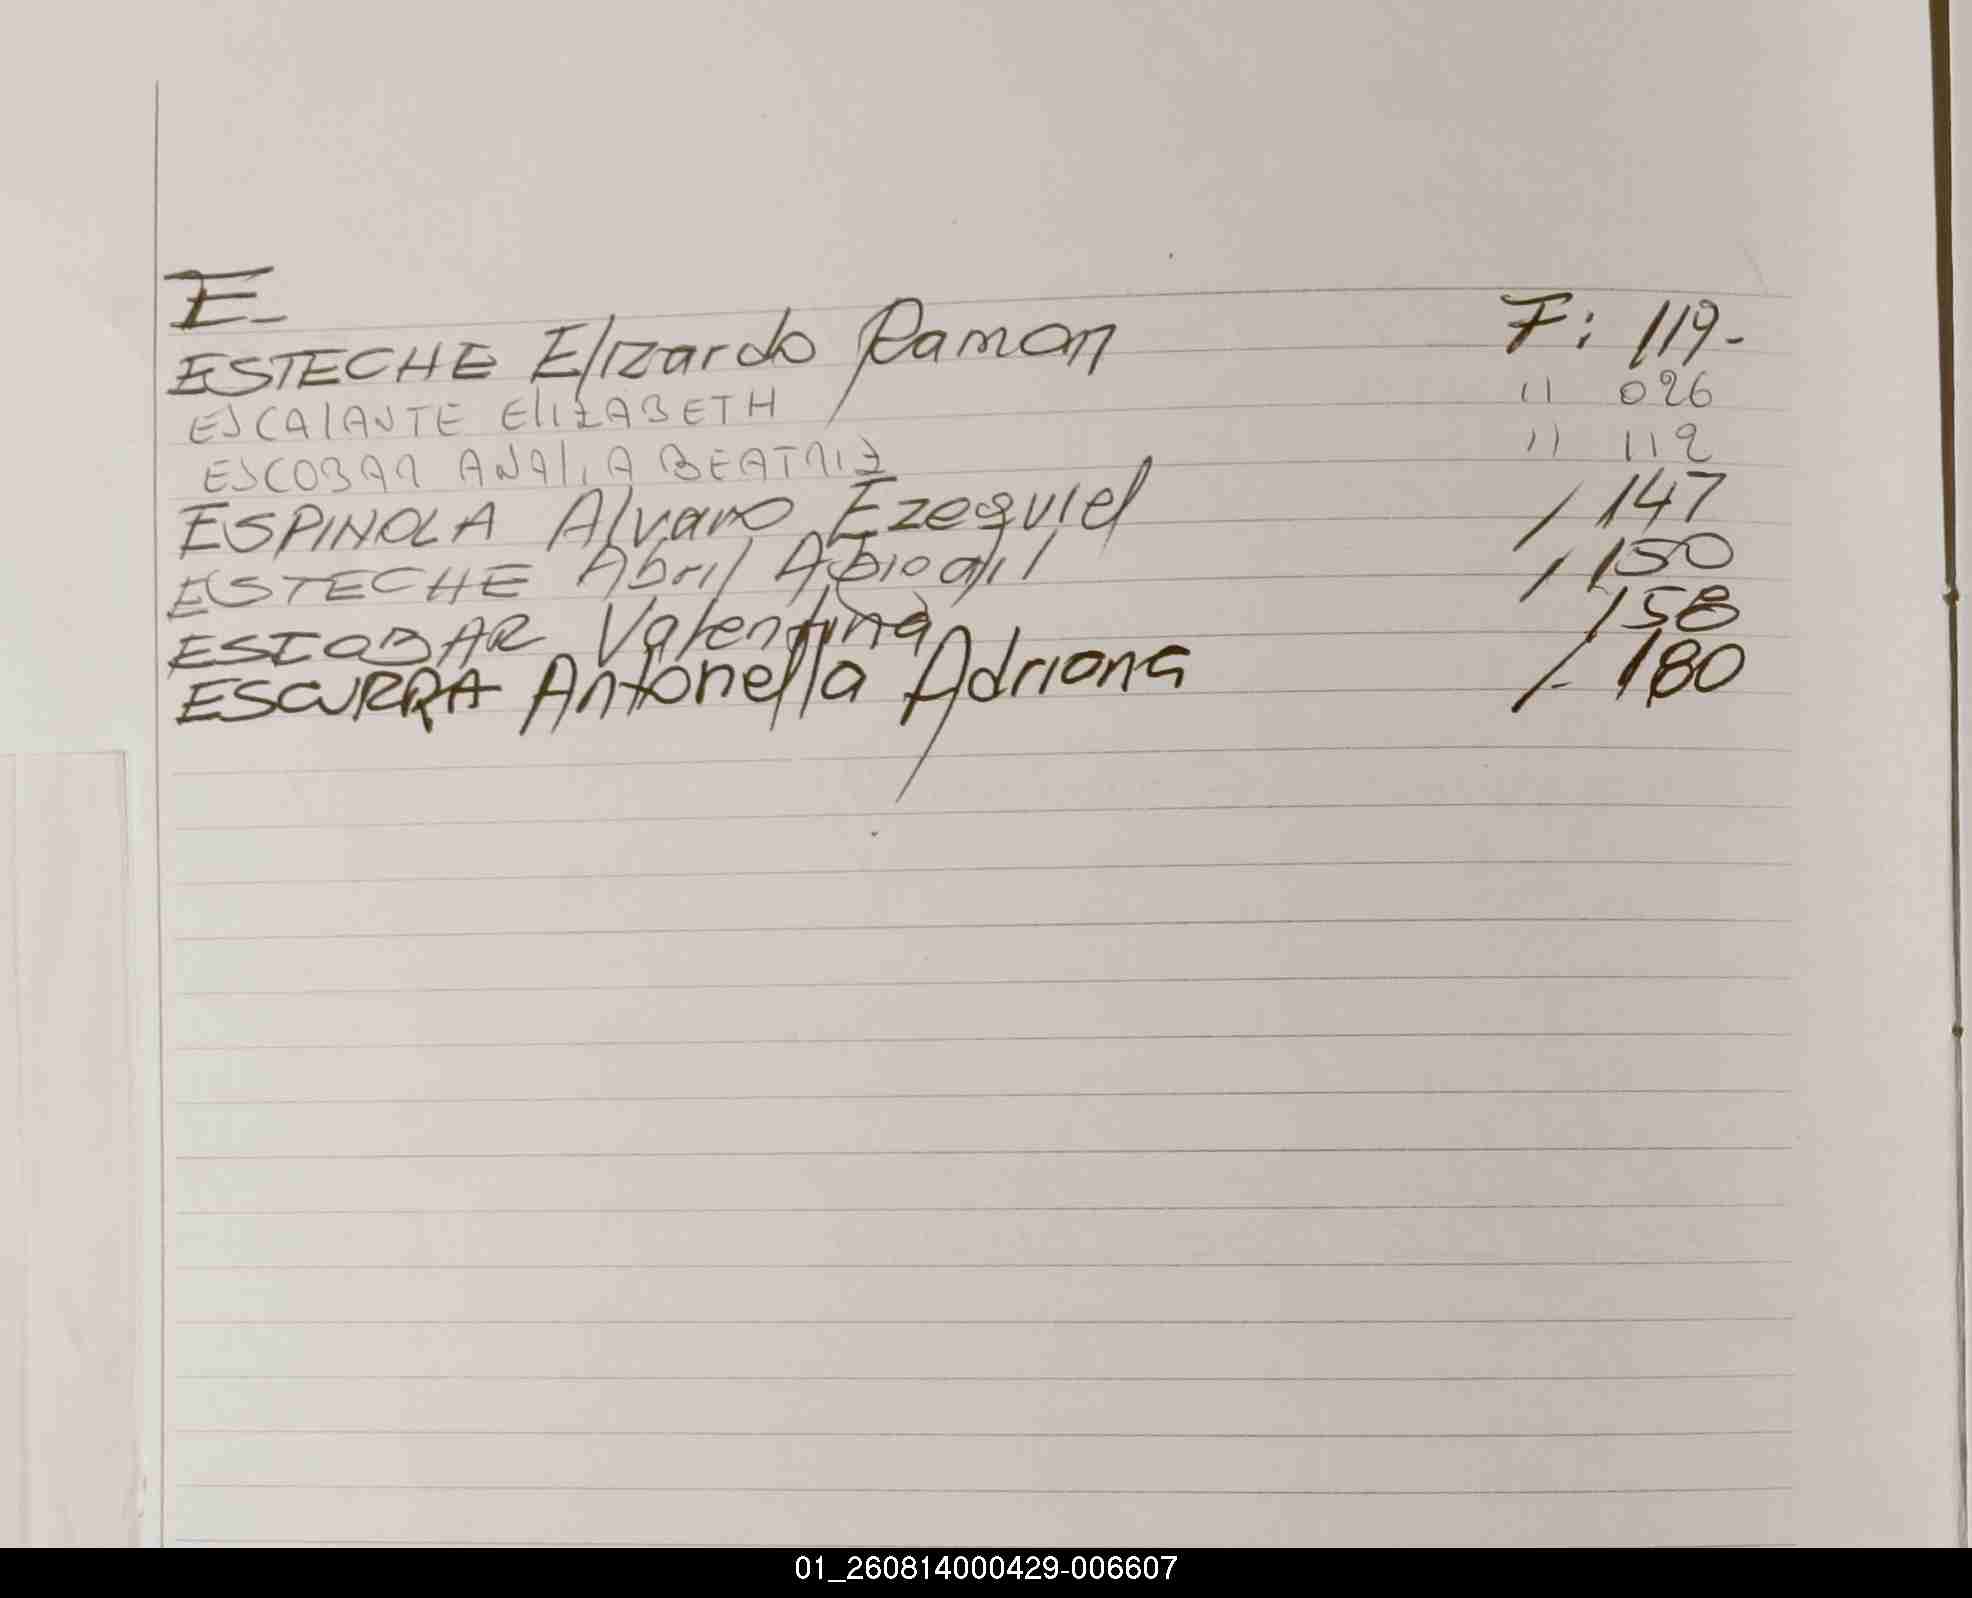 E-
ESTECHE Elizardo Ramon F: 119-
ESCALANTE ELIZABETH " 026
ESCOBAR ANALIA BEATRIZ " 112
ESPINOLA Alvaro Ezequiel / 147
ESTECHE Abril Abigail / 150
ESCOBAR Valentina / 158
ESCURRA Antonella Adriana /- 180
01_260814000429-006607